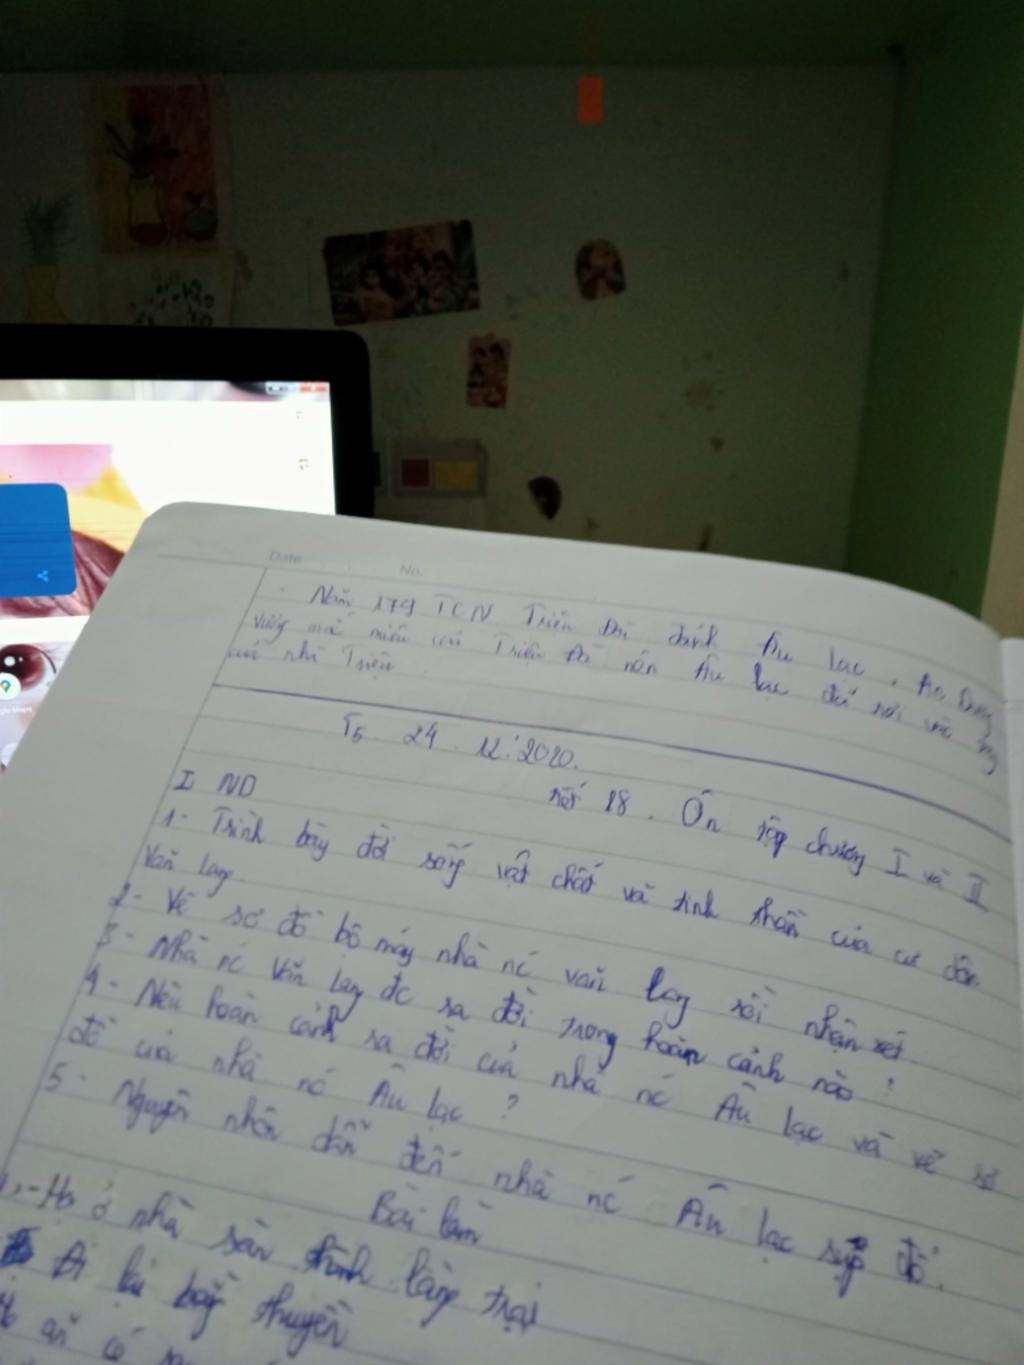 Date No.
- Năm 179 TCN Triệu Đà đánh Âu Lạc, An Dương
Vương mắc mưu của Triệu Đà nên Âu Lạc đã rơi vào tay
của nhà Triệu.
T5 24.12.2020.
Tiết 18. Ôn tập chương I và II
I ND
1- Trình bày đời sống vật chất và tinh thần của cư dân
Văn Lang.
2- Vẽ sơ đồ bộ máy nhà nc Văn Lang rồi nhận xét
3- Nhà nc Văn Lang đc ra đời trong hoàn cảnh nào?
4- Nêu hoàn cảnh ra đời của nhà nc Âu Lạc và vẽ sơ
đồ của nhà nc Âu Lạc?
5- Nguyên nhân dẫn đến nhà nc Âu Lạc sụp đổ.
Bài làm
1, - Họ ở nhà sàn thành làng trại
Đi lại bằng thuyền
ăn có